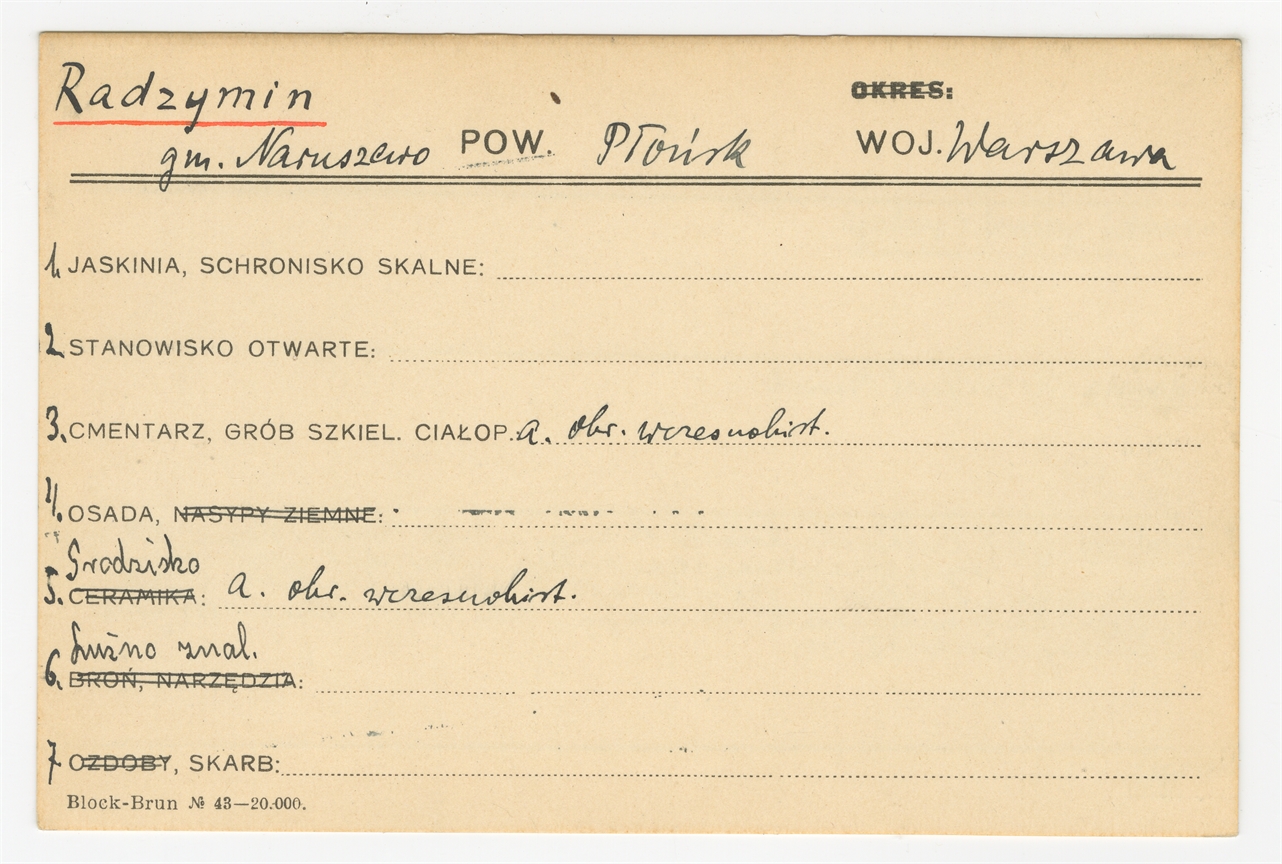 Radzymin OKRES:
gm. Naruszewo POW. Płońsk WOJ. Warszawa
1. JASKINIA, SCHRONISKO SKALNE:
2. STANOWISKO OTWARTE:
3. CMENTARZ, GRÓB SZKIEL. CIAŁOP. a. okr. wczesnohist.
4. OSADA, NASYPY ZIEMNE:
Grodzisko
5. CERAMIKA: a. okr. wczesnohist.
Luźno znal.
6. BROŃ, NARZĘDZIA:
7 OZDOBY, SKARB:
Block-Brun № 43—20.000.